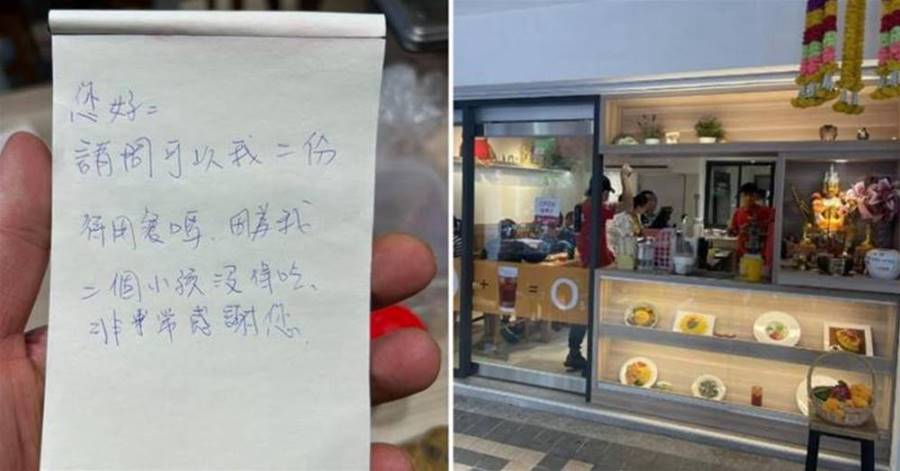 您好：
請問可以我二份
待用餐嗎、因為我
二個小孩沒得吃、
非常感謝您
+ =